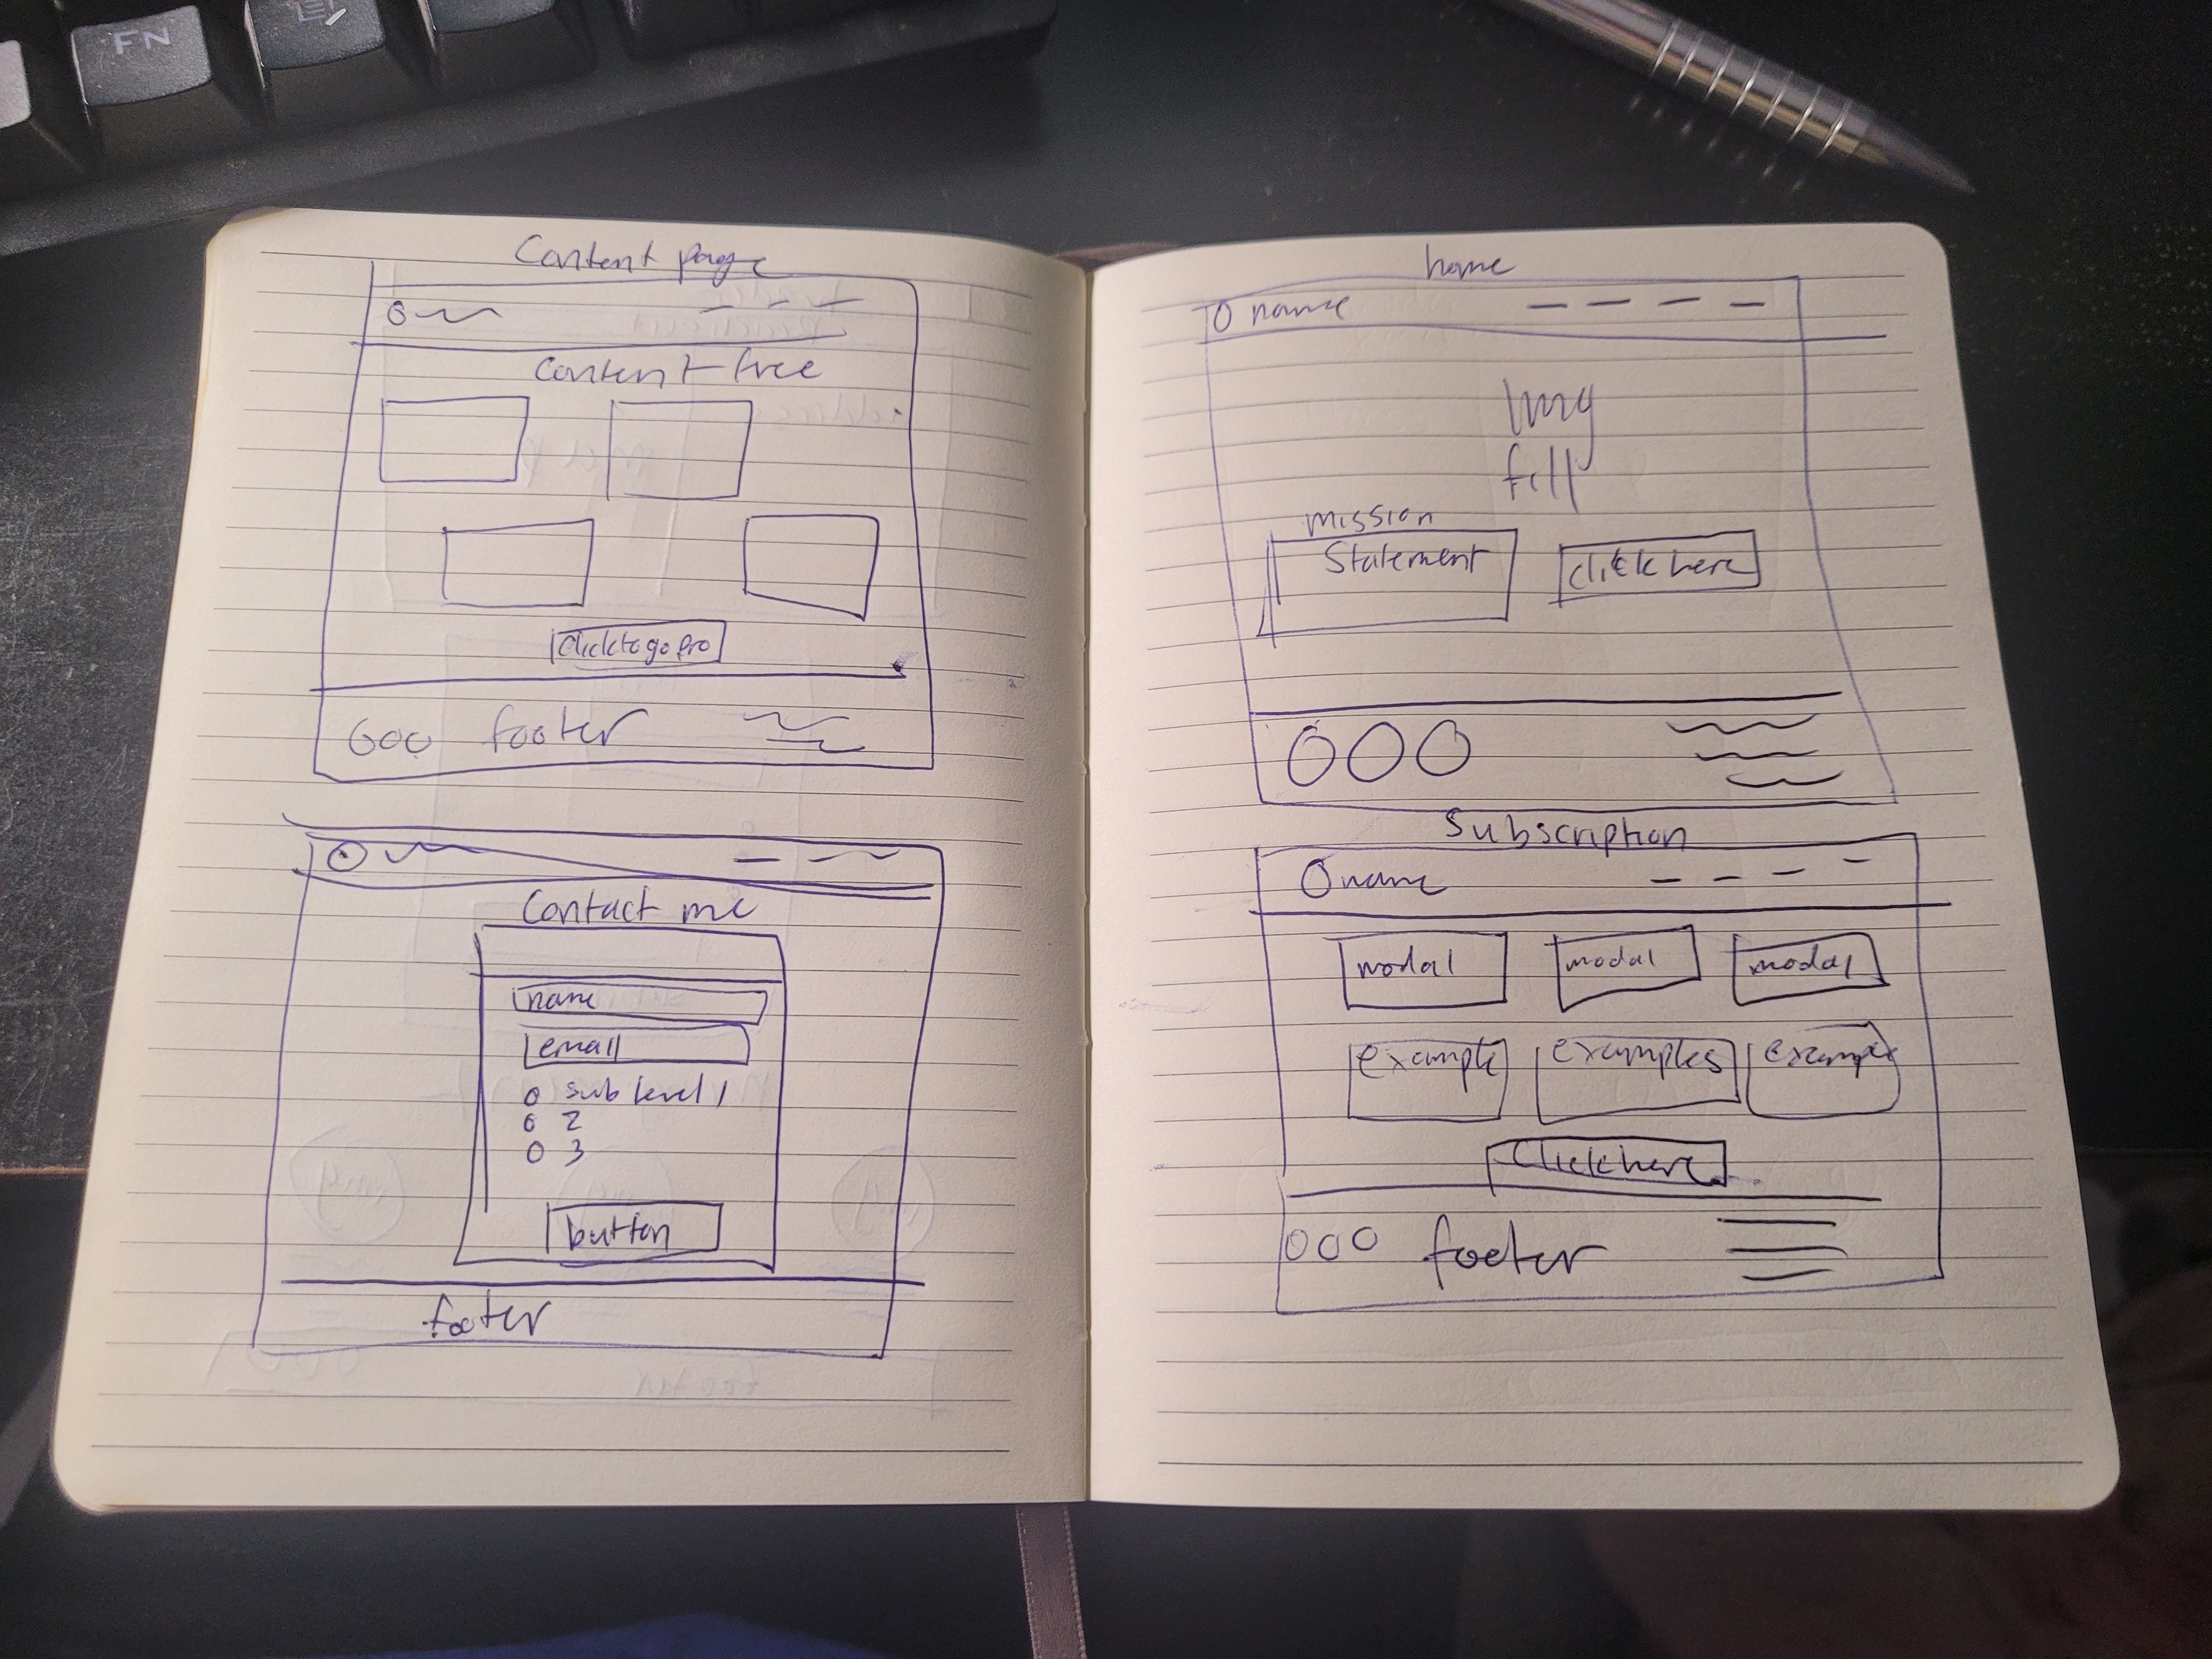 FN
Content page
Content free
Click to go pro
footer
Contact me
name
email
sub level 1
2
3
button
footer
home
name
Img
fill
mission
Statement
click here
Subscription
name
modal
modal
modal
example
examples
example
Click here
footer